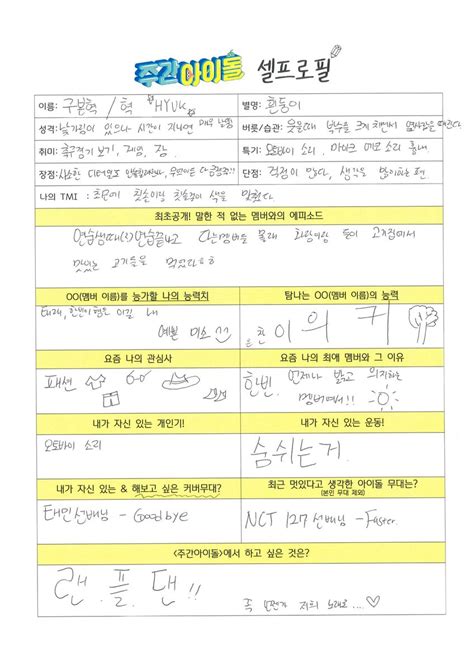 주간아이돌 셀프로필
이름: 구본혁 / 혁 HYUK
별명: 흰둥이
성격: 낯가림이 있으나 시간이 지나면 매우 발랄
버릇/습관: 웃을때 박수를 크게 치면서
취미: 축구경기 보기, 게임, 잠
특기: 오토바이 소리, 마이크 에코 소리 흉내
장점:
단점: 걱정이 많다, 생각을 많이하는 편
나의 TMI : 초면에
최초공개! 말한 적 없는 멤버와의 에피소드
연습생때 연습끝나고 다른멤버들 몰래 화랑이랑 둘이 고깃집에서
맛있는 고기들을 먹었다ㅎㅎ
OO(멤버 이름)를 능가할 나의 능력치
태래, 한빈이형은 이길 내
예쁜 미소
탐나는 OO(멤버 이름)의 능력
이의 키
요즘 나의 관심사
패션
요즘 나의 최애 멤버와 그 이유
한빈 언제나 밝고 의지하는
멤버여서!!
내가 자신 있는 개인기!
오토바이 소리
내가 자신 있는 운동!
숨쉬는거.
내가 자신 있는 & 해보고 싶은 커버무대?
태민선배님 - Goodbye
최근 멋있다고 생각한 아이돌 무대는?
(본인 무대 제외)
NCT 127 선배님 - Faster
<주간아이돌>에서 하고 싶은 것은?
랜플댄!!
꼭 언젠가 저희 노래로...♡